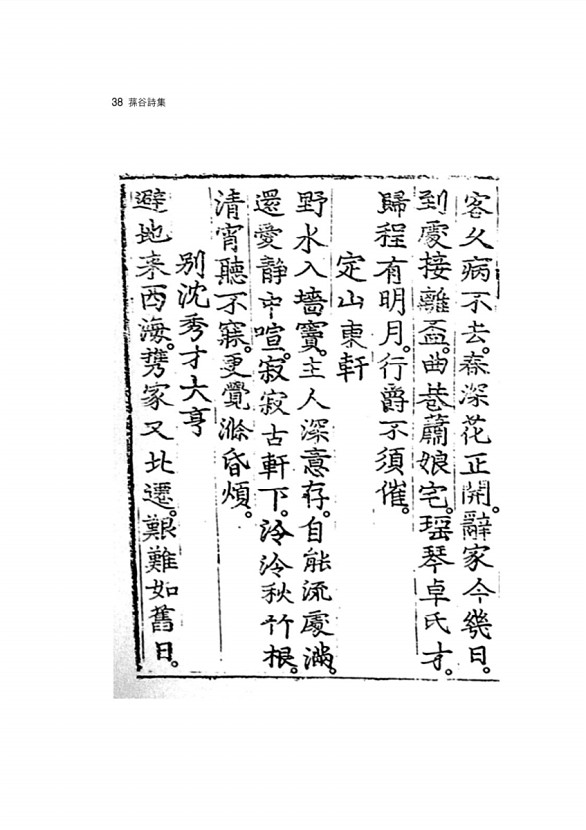 38 蓀谷詩集
客久病不去。春深花正開。辭家今幾日。
到處接離盃。曲巷蕭娘宅。瑶琴卓氏才。
歸程有明月。行爵不須催。
定山東軒
野水入墻竇。主人深意存。自能流處滿。
還愛靜中喧。寂寂古軒下。泠泠秋竹根。
清宵聽不寐。更覺滌昏煩。
別沈秀才大亨
避地来西海。携家又北遷。艱難如舊日。